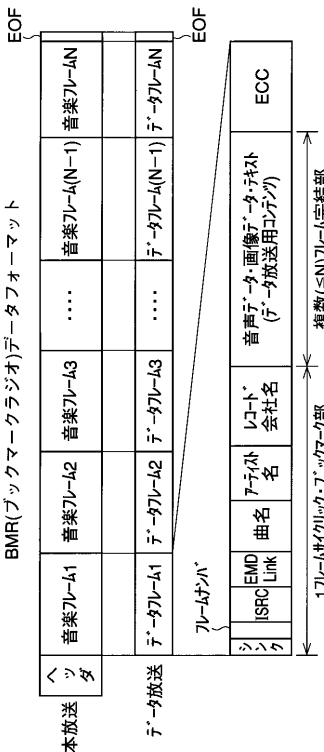 BMR(ブックマークラジオ)データフォーマット
EOF
本放送
ヘッダ
音楽フレーム1
音楽フレーム2
音楽フレーム3
‥‥
音楽フレーム(N−1)
音楽フレームN
データ放送
データフレーム1
データフレーム2
データフレーム3
‥‥
データフレーム(N−1)
データフレームN
EOF
フレームナンバ
シンク
ISRC
EMD
Link
曲名
アーティスト
名
レコード
会社名
音声データ・画像データ・テキスト
(データ放送用コンテンツ)
ECC
1フレームサイクリック・ブックマーク部
複数(≦N)フレーム完結部